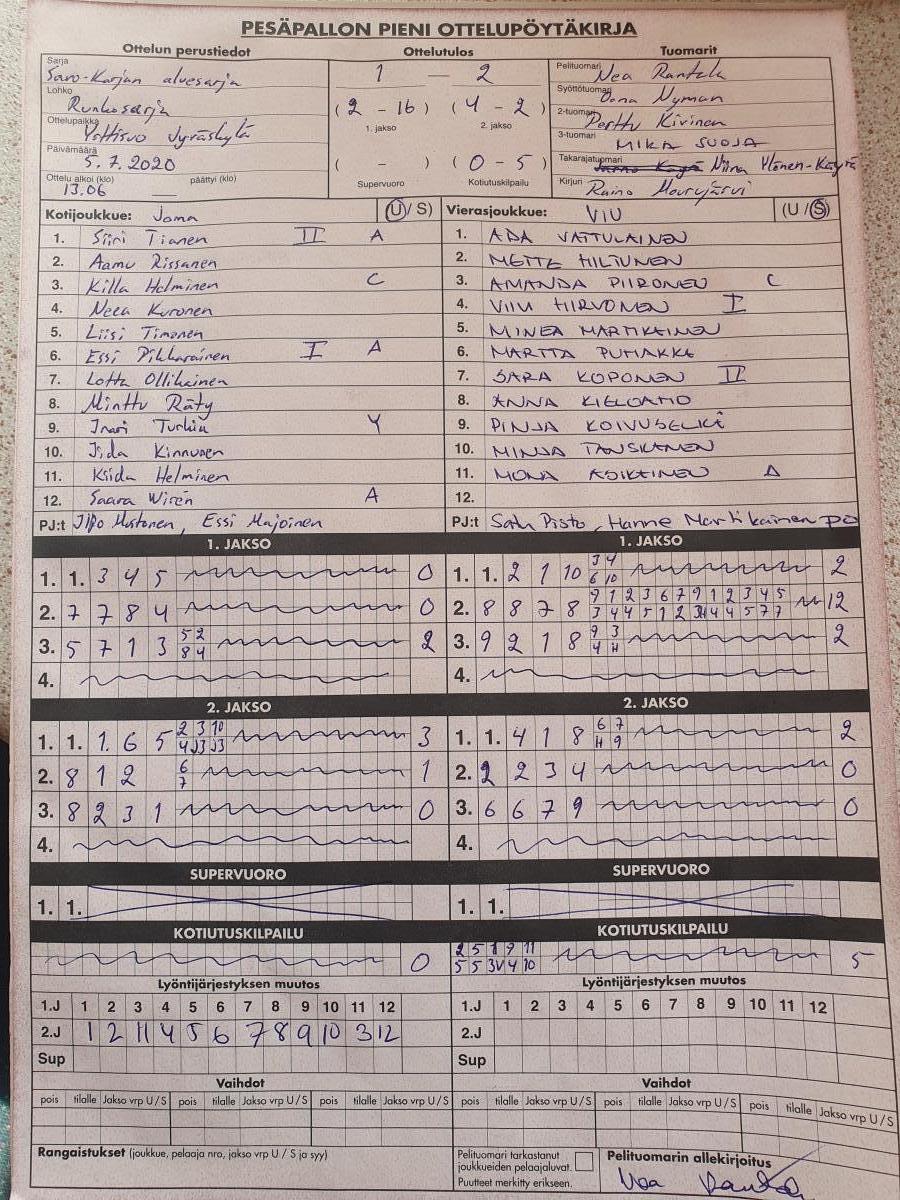 PESÄPALLON PIENI OTTELUPÖYTÄKIRJA
Ottelun perustiedot Ottelutulos Tuomarit
Sarja
Savo-Karjan aluesarja
Lohko
Runkosarja
Ottelupaikka
Jyväskylä
Päivämäärä
5.7.2020
Ottelu alkoi (klo) päättyi (klo)
13.06
1 — 2
(2 - 16) (4 - 2)
1. jakso 2. jakso
( - ) (0 - 5)
Supervuoro Kotiutuskilpailu
Pelituomari Nea Rantala
Syöttötuomari Oona Nyman
2-tuomari Perttu Kivinen
3-tuomari MIKA SUOJA
Takarajatuomari Niina Ylönen-Käyrä
Kirjuri Raino Mourujärvi
Kotijoukkue: Joma (U/S)
1. Siiri Tianen II A
2. Aamu Rissanen
3. Killa Helminen C
4. Neea Kuronen
5. Liisi Timonen
6. Essi Pikkarainen I A
7. Lotta Ollikainen
8. Minttu Räty
9. Inari Turkia Y
10. Iida Kinnunen
11. Ksiida Helminen
12. Saara Wirén A
PJ:t Mustonen, Essi Majoinen
Vierasjoukkue: ViU (U/S)
1. ADA VATTULAINEN
2. METTE HILTUNEN
3. AMANDA PIIRONEN C
4. VIIVI HIRVONEN I
5. MINEA MARTIKAINEN
6. MARTTA PUHAKKA
7. SARA KOPONEN II
8. ANNA KIELOAHO
9. PINJA KOIVUSELKÄ
10. MINJA TANSKANEN
11. MONA ASIKAINEN A
12.
PJ:t Satu Pisto, Hanne Martikainen PO
1. JAKSO
1. 1. 3 4 5 0
2. 7 7 8 4 0
3. 5 7 1 3 5 2 2
8 4
4.
1. JAKSO
1. 1. 2 1 10 3 4 2
6 10
2. 8 8 7 8 9 1 2 3 6 7 9 1 2 3 4 5 12
3 4 4 5 1 2 3H 4 4 5 7 7
3. 9 2 1 8 9 3 2
4 H
4.
2. JAKSO
1. 1. 1. 6 5 2 3 10 3
4 J3 J3
2. 8 1 2 6 1
7
3. 8 2 3 1 0
4.
2. JAKSO
1. 1. 4 1 8 6 7 2
H 9
2. 2 2 3 4 0
3. 6 6 7 9 0
4.
SUPERVUORO SUPERVUORO
1. 1. 1. 1.
KOTIUTUSKILPAILU KOTIUTUSKILPAILU
0 2 5 7 9 11 5
5 5 3V 4 10
Lyöntijärjestyksen muutos Lyöntijärjestyksen muutos
1.J 1 2 3 4 5 6 7 8 9 10 11 12 1.J 1 2 3 4 5 6 7 8 9 10 11 12
2.J 1 2 11 4 5 6 7 8 9 10 3 12 2.J
Sup Sup
Vaihdot Vaihdot
pois tilalle Jakso vrp U/S pois tilalle Jakso vrp U/S pois tilalle Jakso vrp U/S pois tilalle Jakso vrp U/S pois tilalle Jakso vrp U/S pois tilalle Jakso vrp U/S
Rangaistukset (joukkue, pelaaja nro, jakso vrp U / S ja syy)
Pelituomari tarkastanut
joukkueiden pelaajaluvat.
Puutteet merkitty erikseen.
Pelituomarin allekirjoitus
Nea Rantala